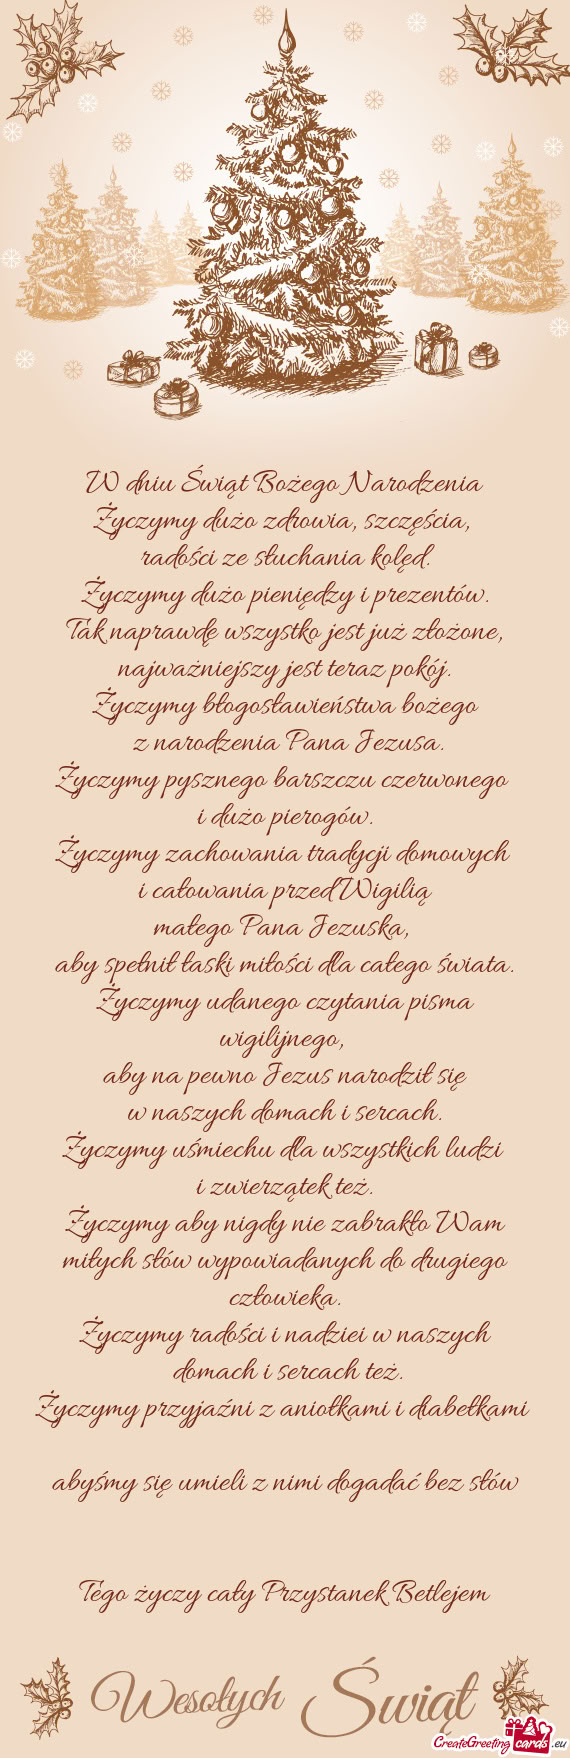 W dniu Świąt Bożego Narodzenia
Życzymy dużo zdrowia, szczęścia,
radości ze słuchania kolęd.
Życzymy dużo pieniędzy i prezentów.
Tak naprawdę wszystko jest już złożone,
najważniejszy jest teraz pokój.
Życzymy błogosławieństwa bożego
z narodzenia Pana Jezusa.
Życzymy pysznego barszczu czerwonego
i dużo pierogów.
Życzymy zachowania tradycji domowych
i całowania przed Wigilią
małego Pana Jezuska,
aby spełnił łaski miłości dla całego świata.
Życzymy udanego czytania pisma
wigilijnego,
aby na pewno Jezus narodził się
w naszych domach i sercach.
Życzymy uśmiechu dla wszystkich ludzi
i zwierzątek też.
Życzymy aby nigdy nie zabrakło Wam
miłych słów wypowiadanych do drugiego
człowieka.
Życzymy radości i nadziei w naszych
domach i sercach też.
Życzymy przyjaźni z aniołkami i diabełkami
abyśmy się umieli z nimi dogadać bez słów
Tego życzy cały Przystanek Betlejem
Wesołych Świąt
CreateGreetingcards.eu